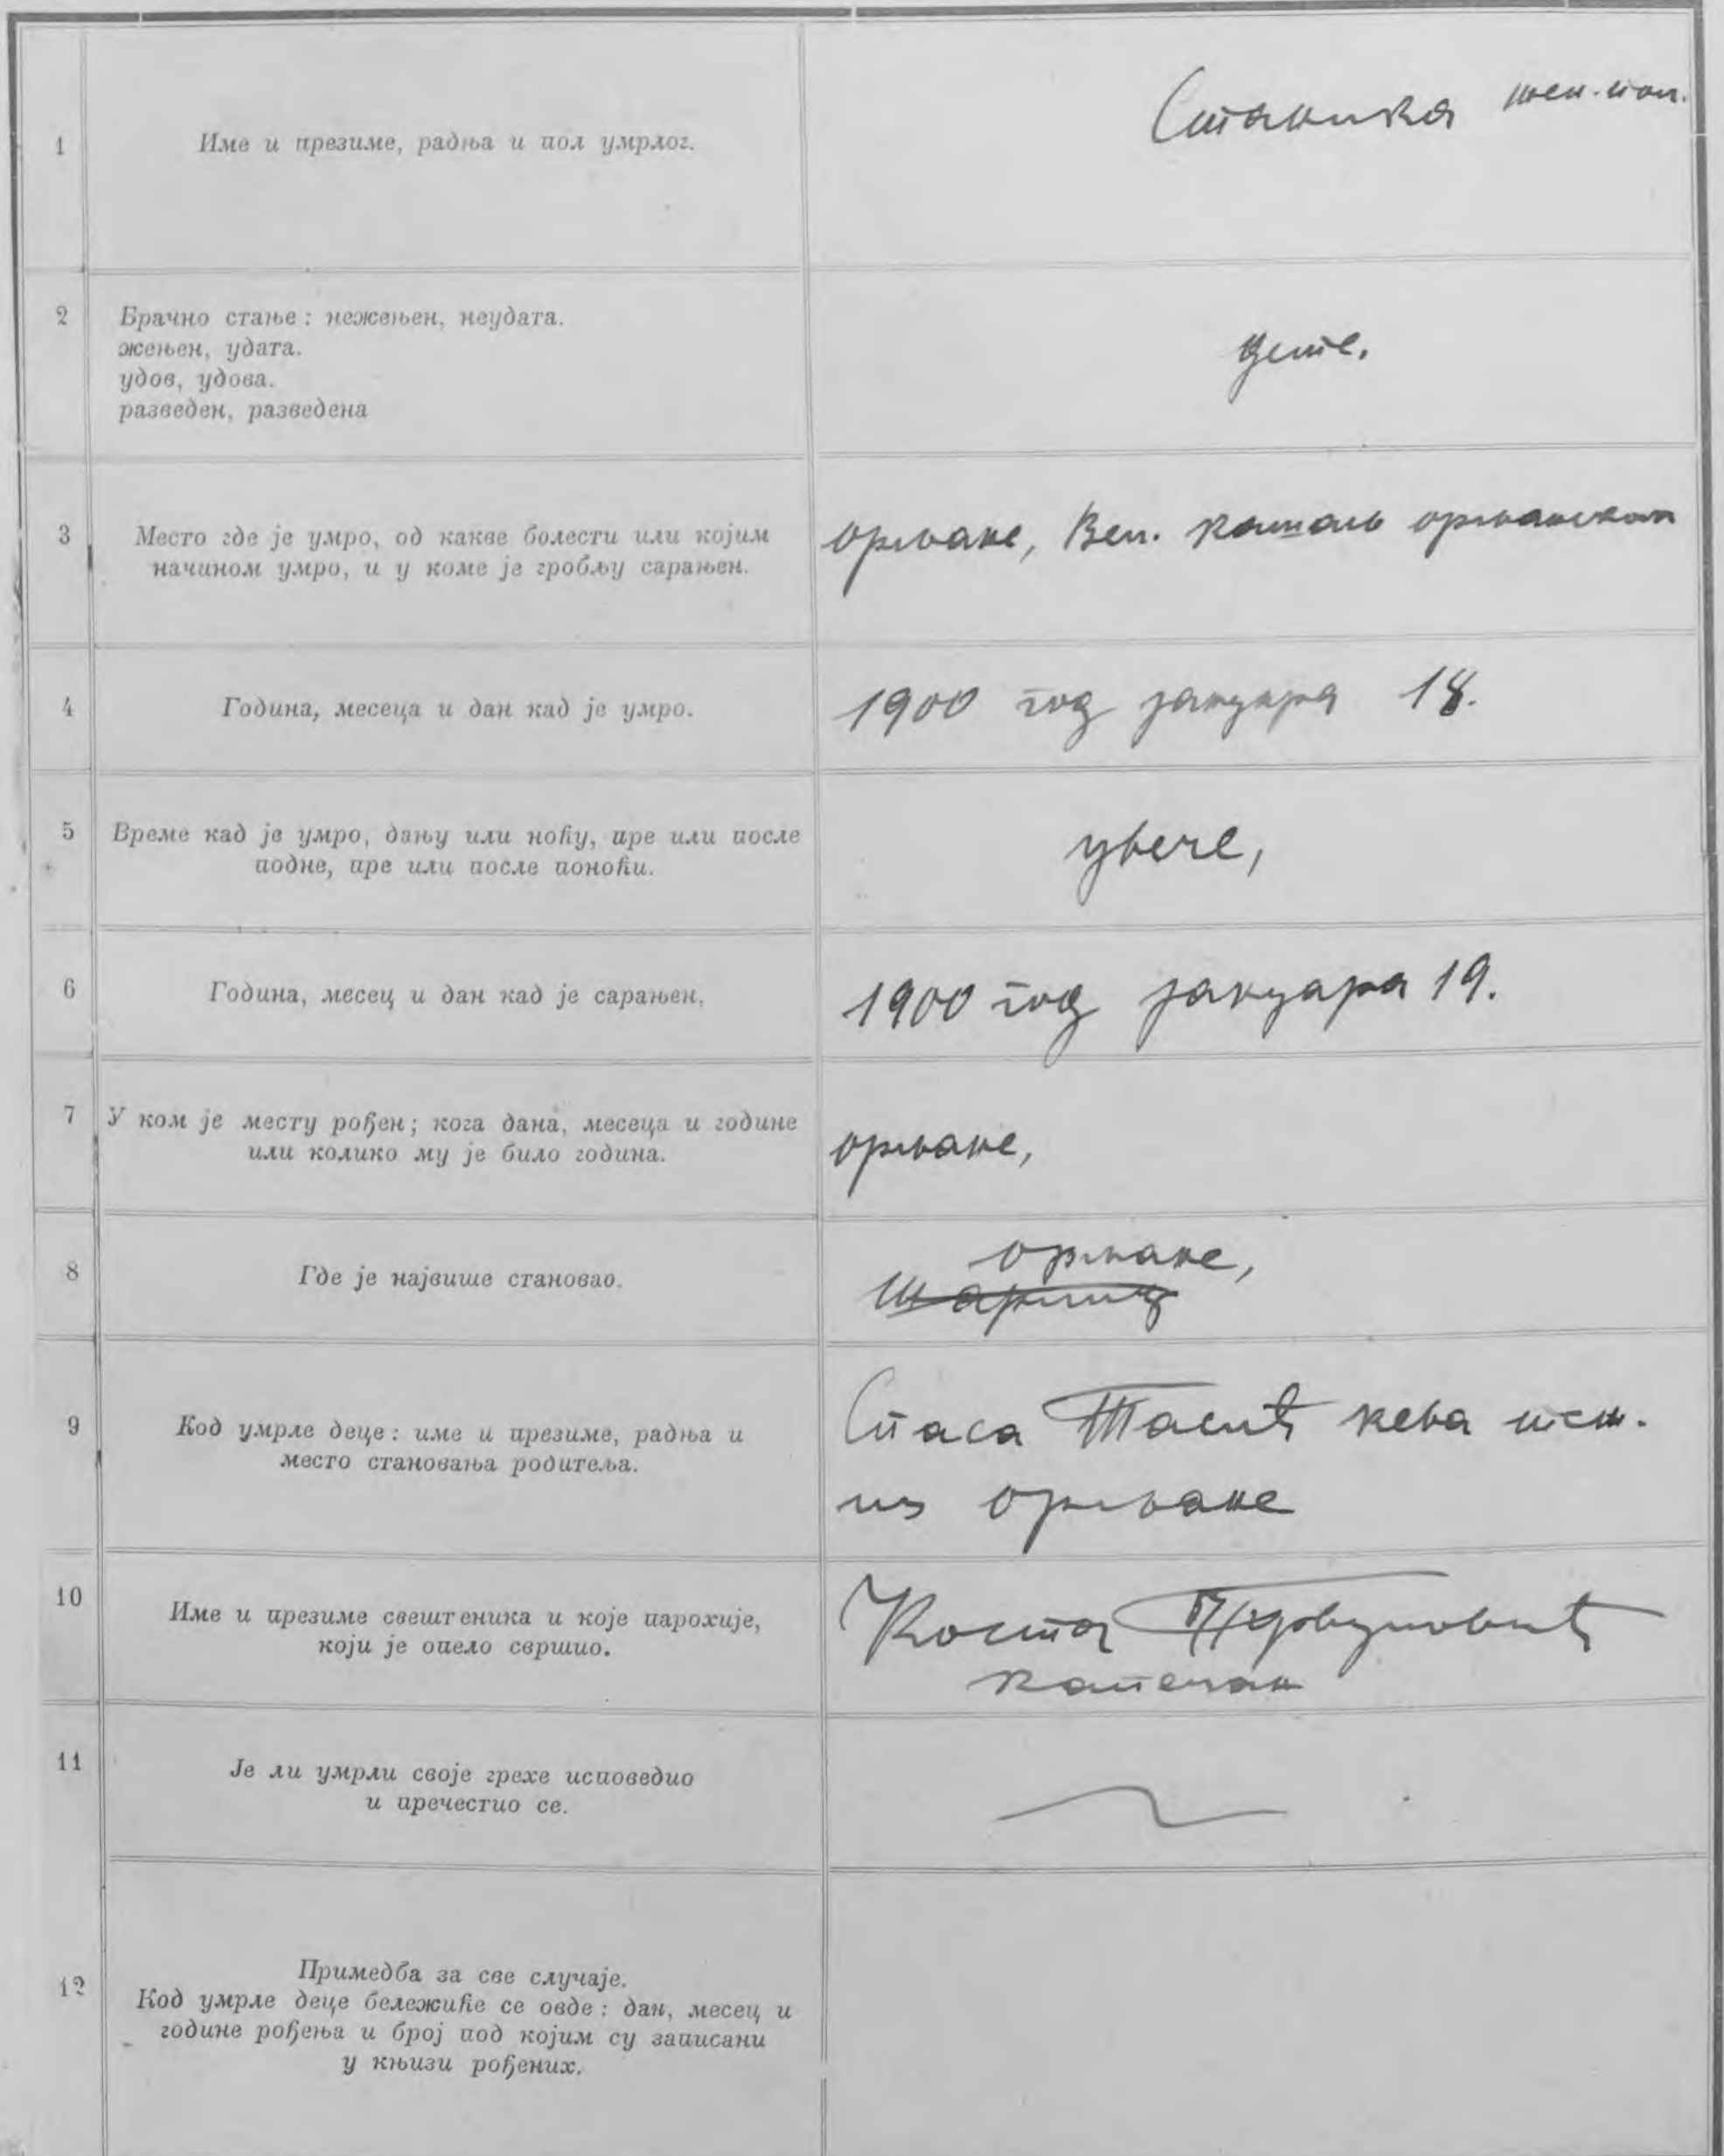 1
Име и презиме, радња и пол умрлог.
Станика жен. пол.
2
Брачно стање: нежењен, неудата.
жењен, удата.
удов, удова.
разведен, разведена
дете.
3
Место где је умро, од какве болести или којим
начином умро, и у коме је гробљу сарањен.
орљане, Вел. кашаљ орљанском
4
Година, месеца и дан кад је умро.
1900 год јануара 18.
5
Време кад је умро, дању или ноћу, пре или после
подне, пре или после поноћи.
увече,
6
Година, месец и дан кад је сарањен.
1900 год јануара 19.
7
У ком је месту рођен; кога дана, месеца и године
или колико му је било година.
орљане,
8
Где је највише становао.
орљане,
9
Код умрле деце: име и презиме, радња и
место становања родитеља.
Спаса Тасић
из орљане
10
Име и презиме свештеника и које парохије,
који је опело свршио.
Коста
11
Је ли умрли своје грехе исповедио
и пречестио се.
12
Примедба за све случаје.
Код умрле деце бележиће се овде: дан, месец и
године рођења и број под којим су записани
у књизи рођених.